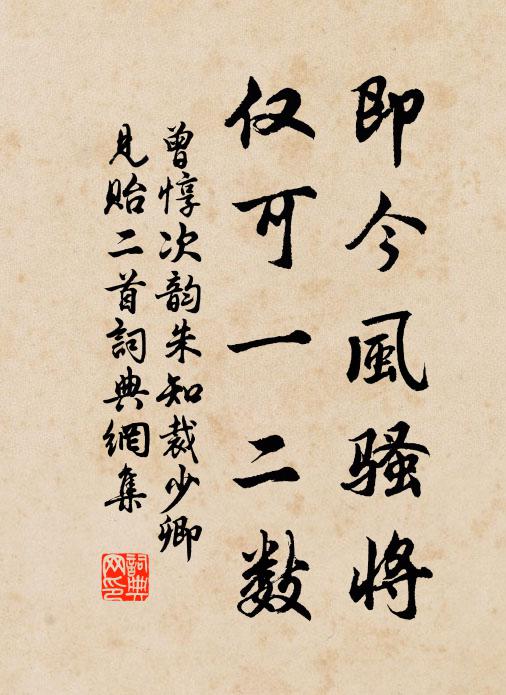 即今風騷將
仅可一二数
曾惇次韵朱知裁少卿
見貽二首詞典網集
詞典
网印